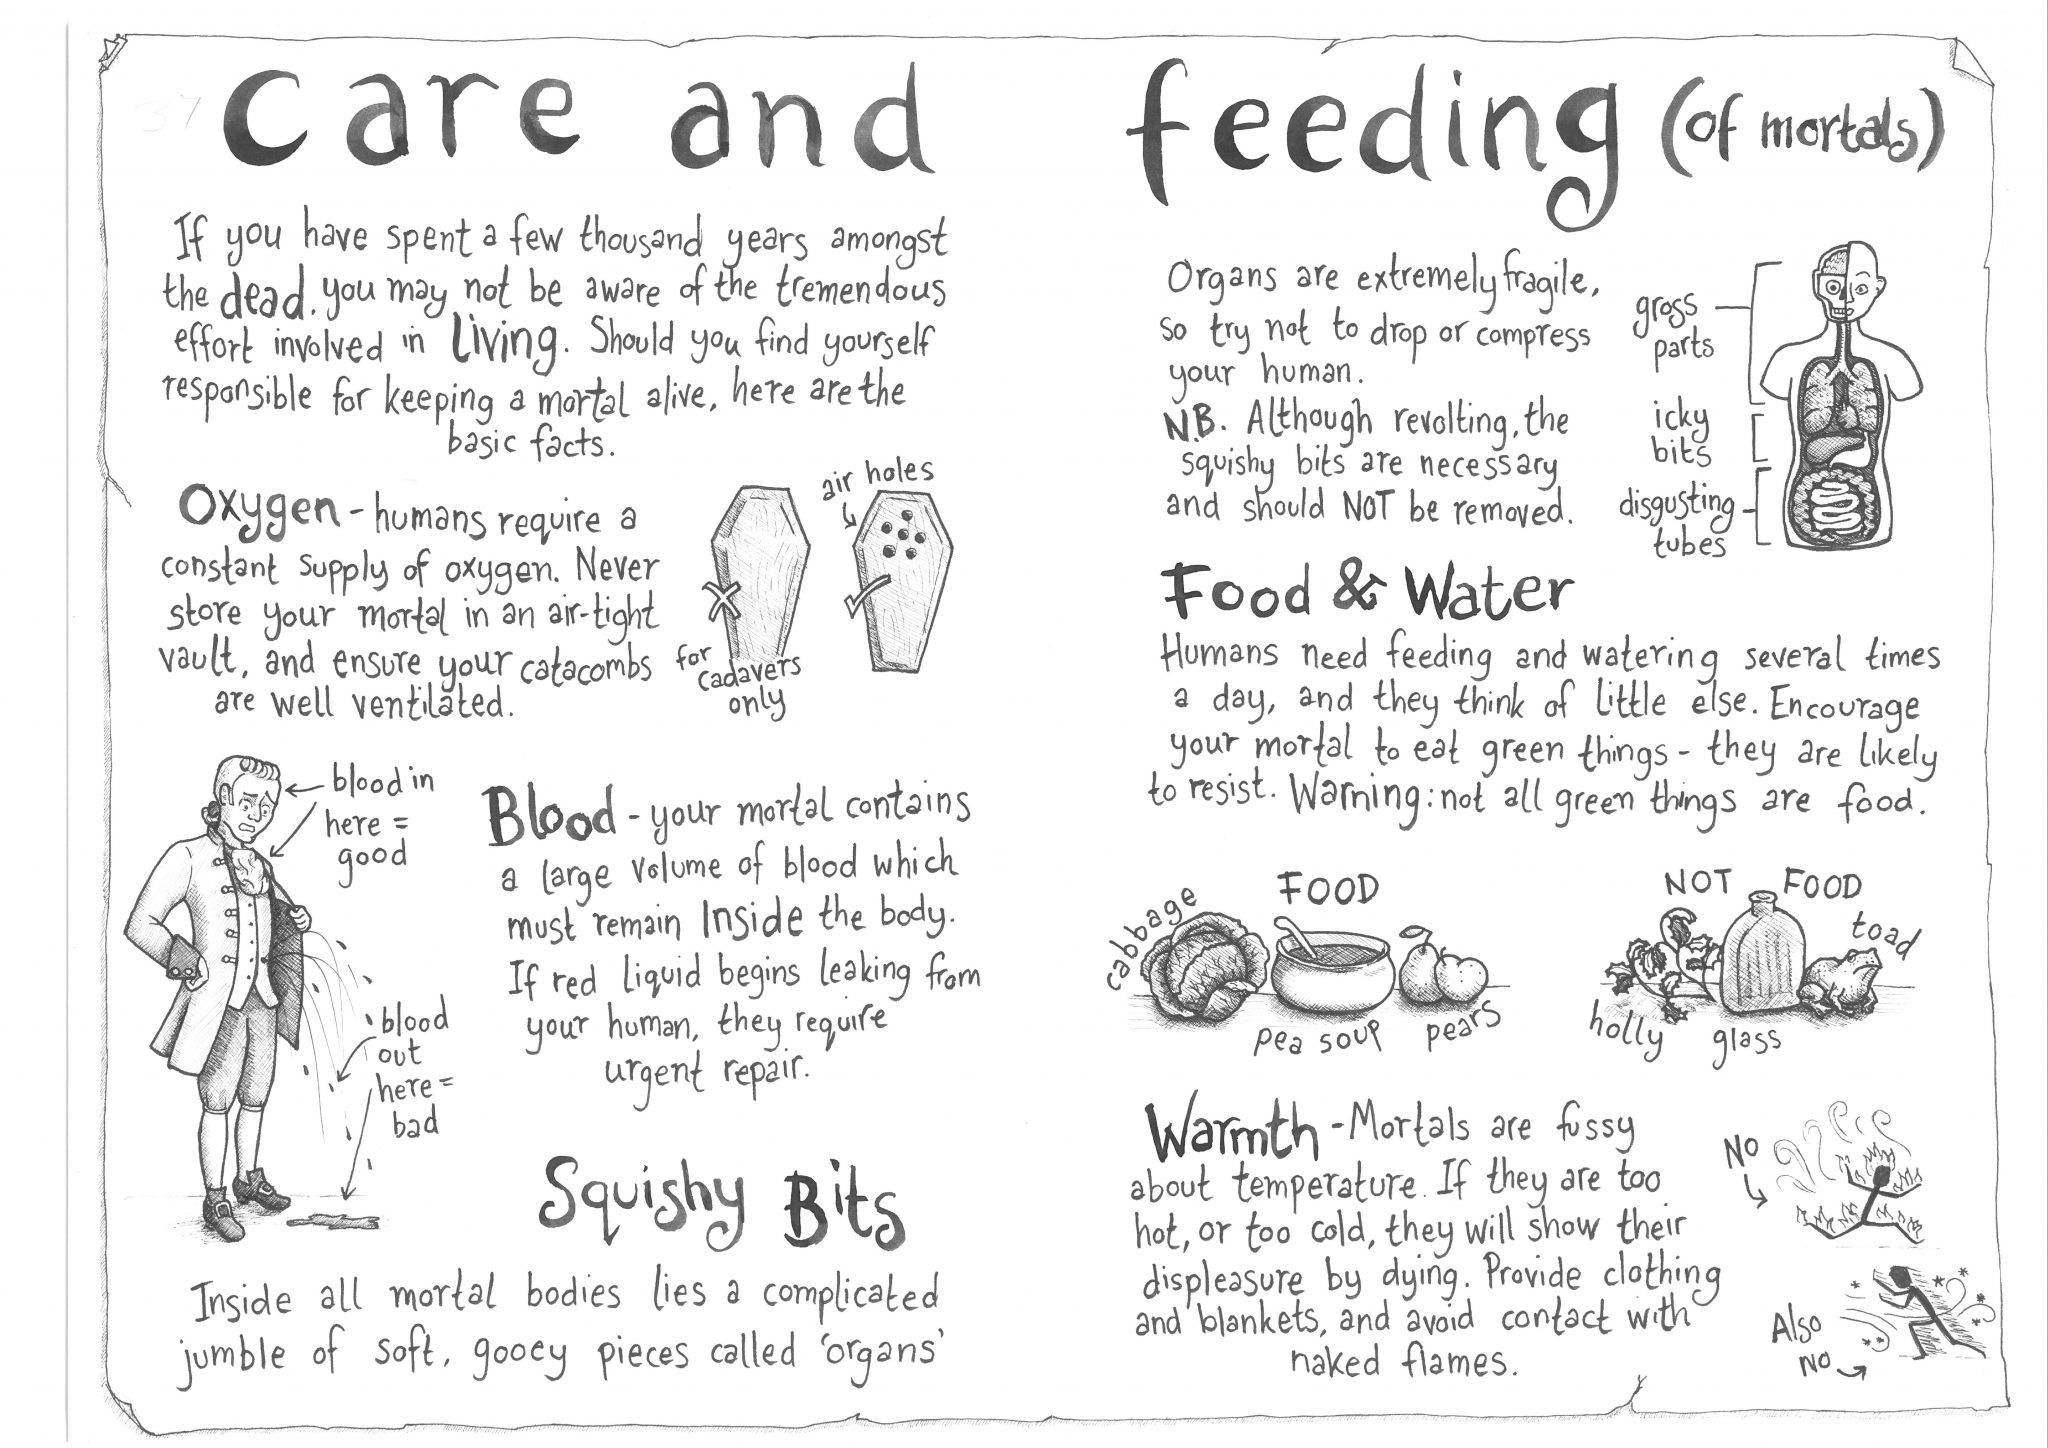 care and feeding (of mortals)
If you have spent a few thousand years amongst
the dead, you may not be aware of the tremendous
effort involved in living. Should you find yourself
responsible for keeping a mortal alive, here are the
basic facts.
Oxygen - humans require a
constant supply of oxygen. Never
store your mortal in an air-tight
vault, and ensure your catacombs
are well ventilated.
for
cadavers
only
air holes
blood in
here =
good
blood
out
here =
bad
Blood - your mortal contains
a large volume of blood which
must remain inside the body.
If red liquid begins leaking from
your human, they require
urgent repair.
Squishy Bits
Inside all mortal bodies lies a complicated
jumble of soft, gooey pieces called 'organs'
Organs are extremely fragile,
so try not to drop or compress
your human.
N.B. Although revolting, the
squishy bits are necessary
and should NOT be removed.
gross
parts
icky
bits
disgusting
tubes
Food & Water
Humans need feeding and watering several times
a day, and they think of little else. Encourage
your mortal to eat green things - they are likely
to resist. Warning: not all green things are food.
FOOD
cabbage
pea soup
pears
NOT FOOD
holly
glass
toad
Warmth - Mortals are fussy
about temperature. If they are too
hot, or too cold, they will show their
displeasure by dying. Provide clothing
and blankets, and avoid contact with
naked flames.
NO
Also
NO
37